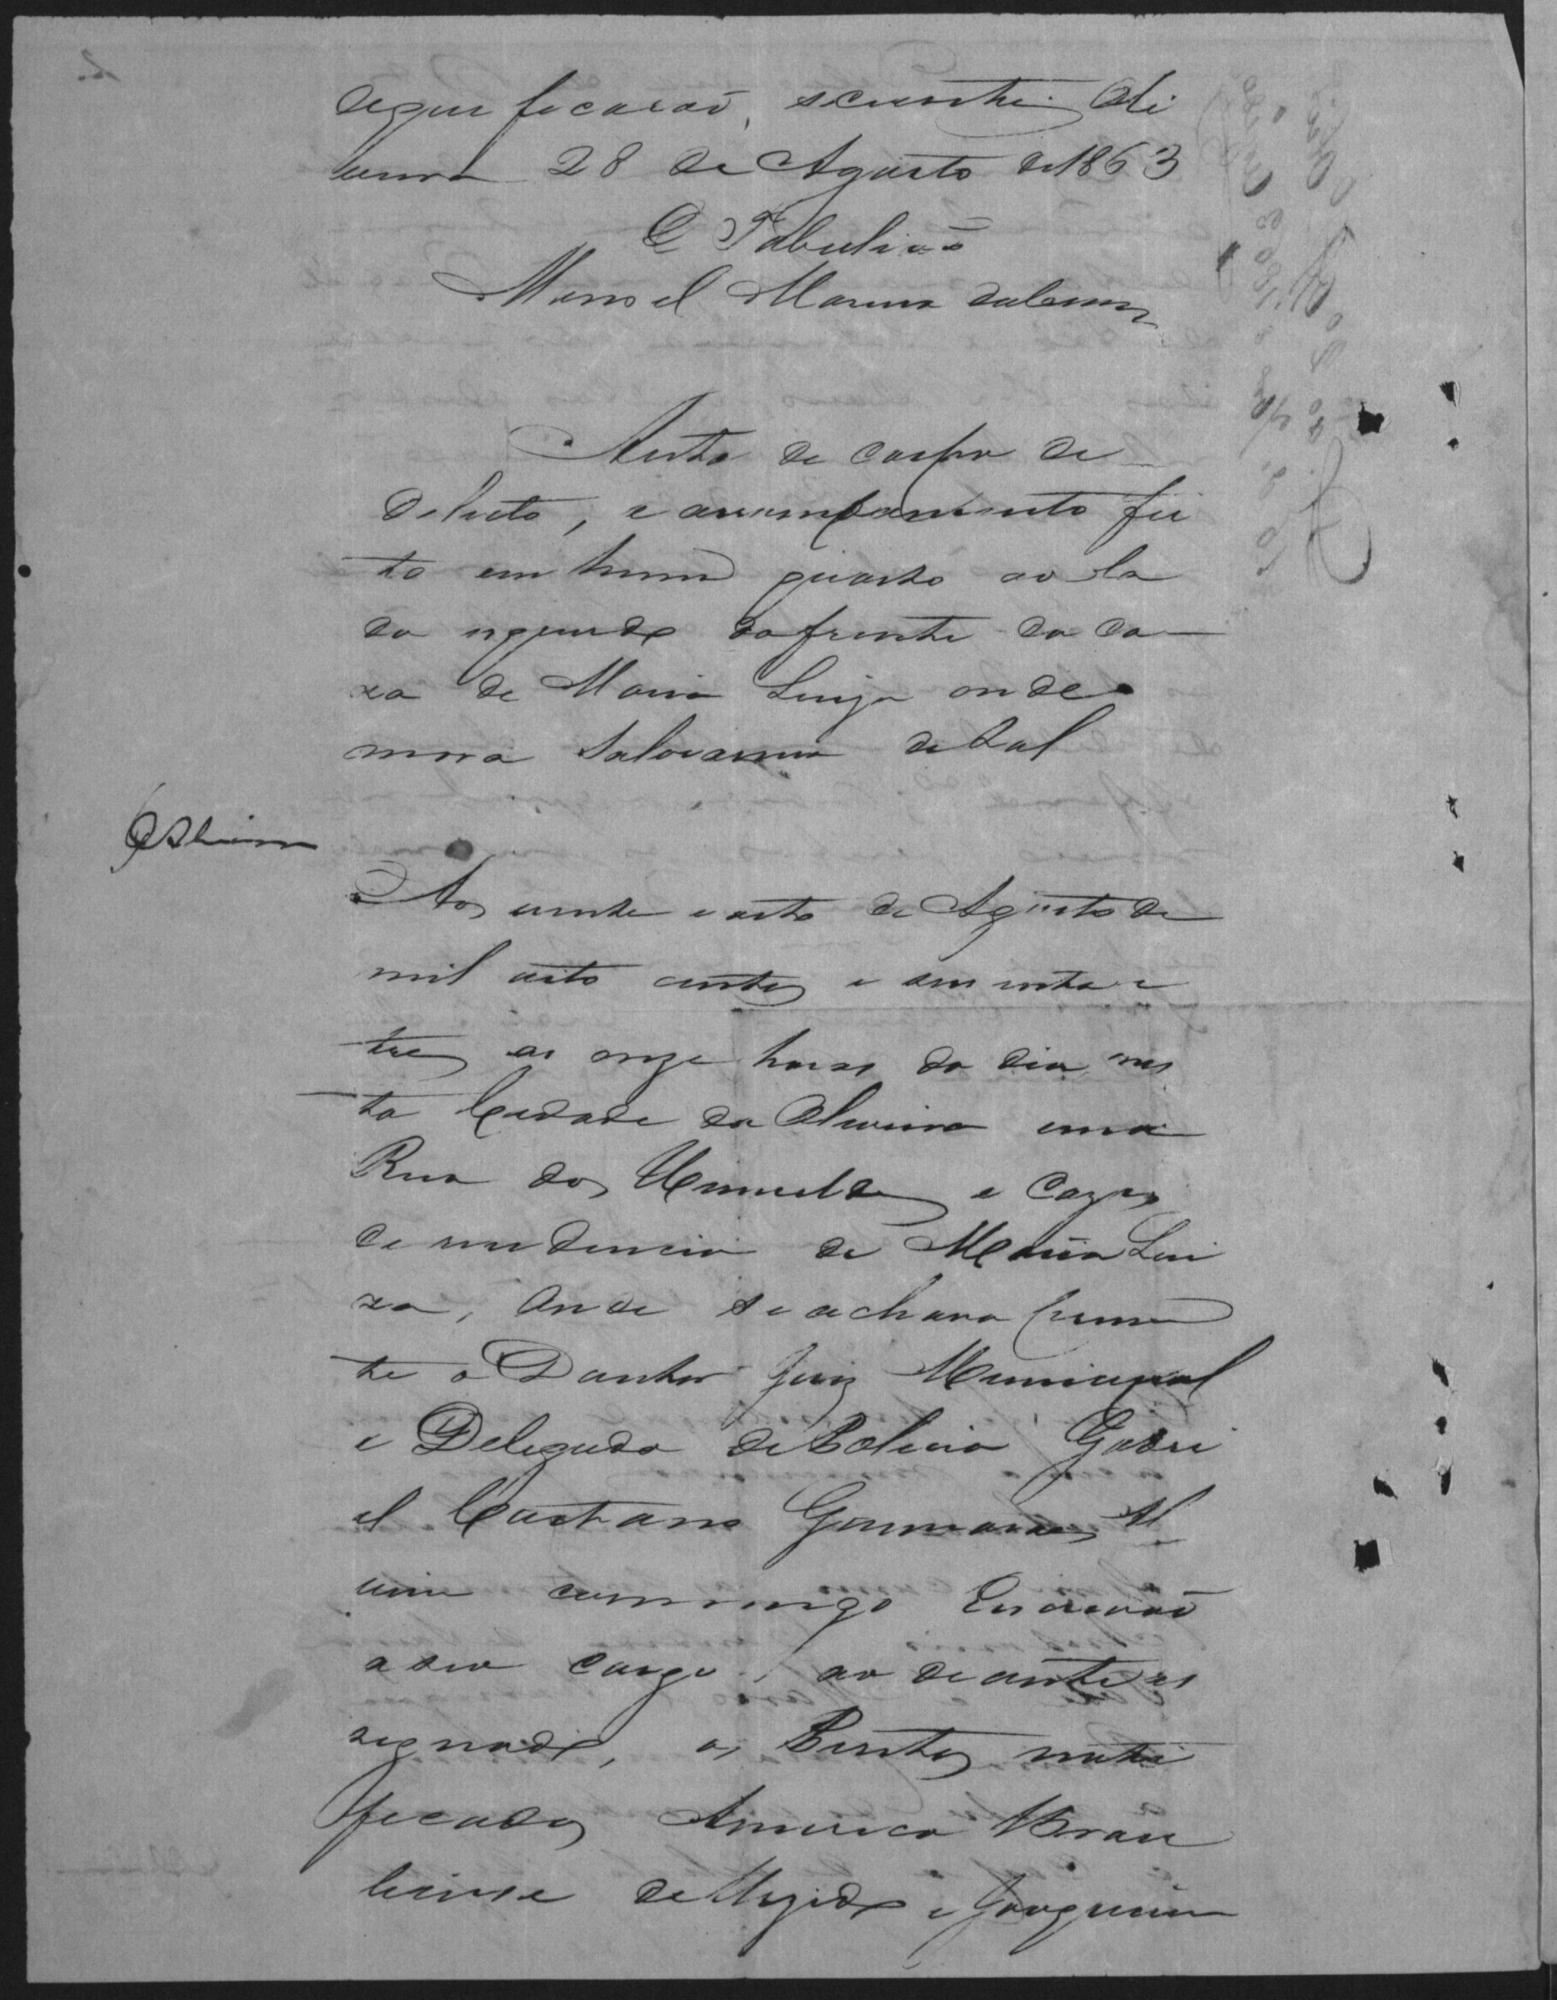 deque ficarão, sciente. Oli
veira 28 de Agosto de 1863
O Tabelião
Manoel Marim
Auto de corpo de
delicto, e arrombamento fei
to em hum quarto ao la
do esquerdo da frente da ca
za de Maria Luiza onde
mora de Tal
Aos vinte e oito de Agosto de
mil oito centos e secenta e
tres as onze horas do dia nes
ta Cidade da Oliveira em a
Rua dos e Cazas
de rezidencia de Maria Lui
za, onde se achava prezen
te o Doutor Juiz Municipal
e Delegado de Policia Gabri
el Caetano Guimarães Al
vim commigo Escrivão
a seu cargo, ao deante as
signado, os Peritos noti
ficados Americo Brazi
liense de e Joaquim